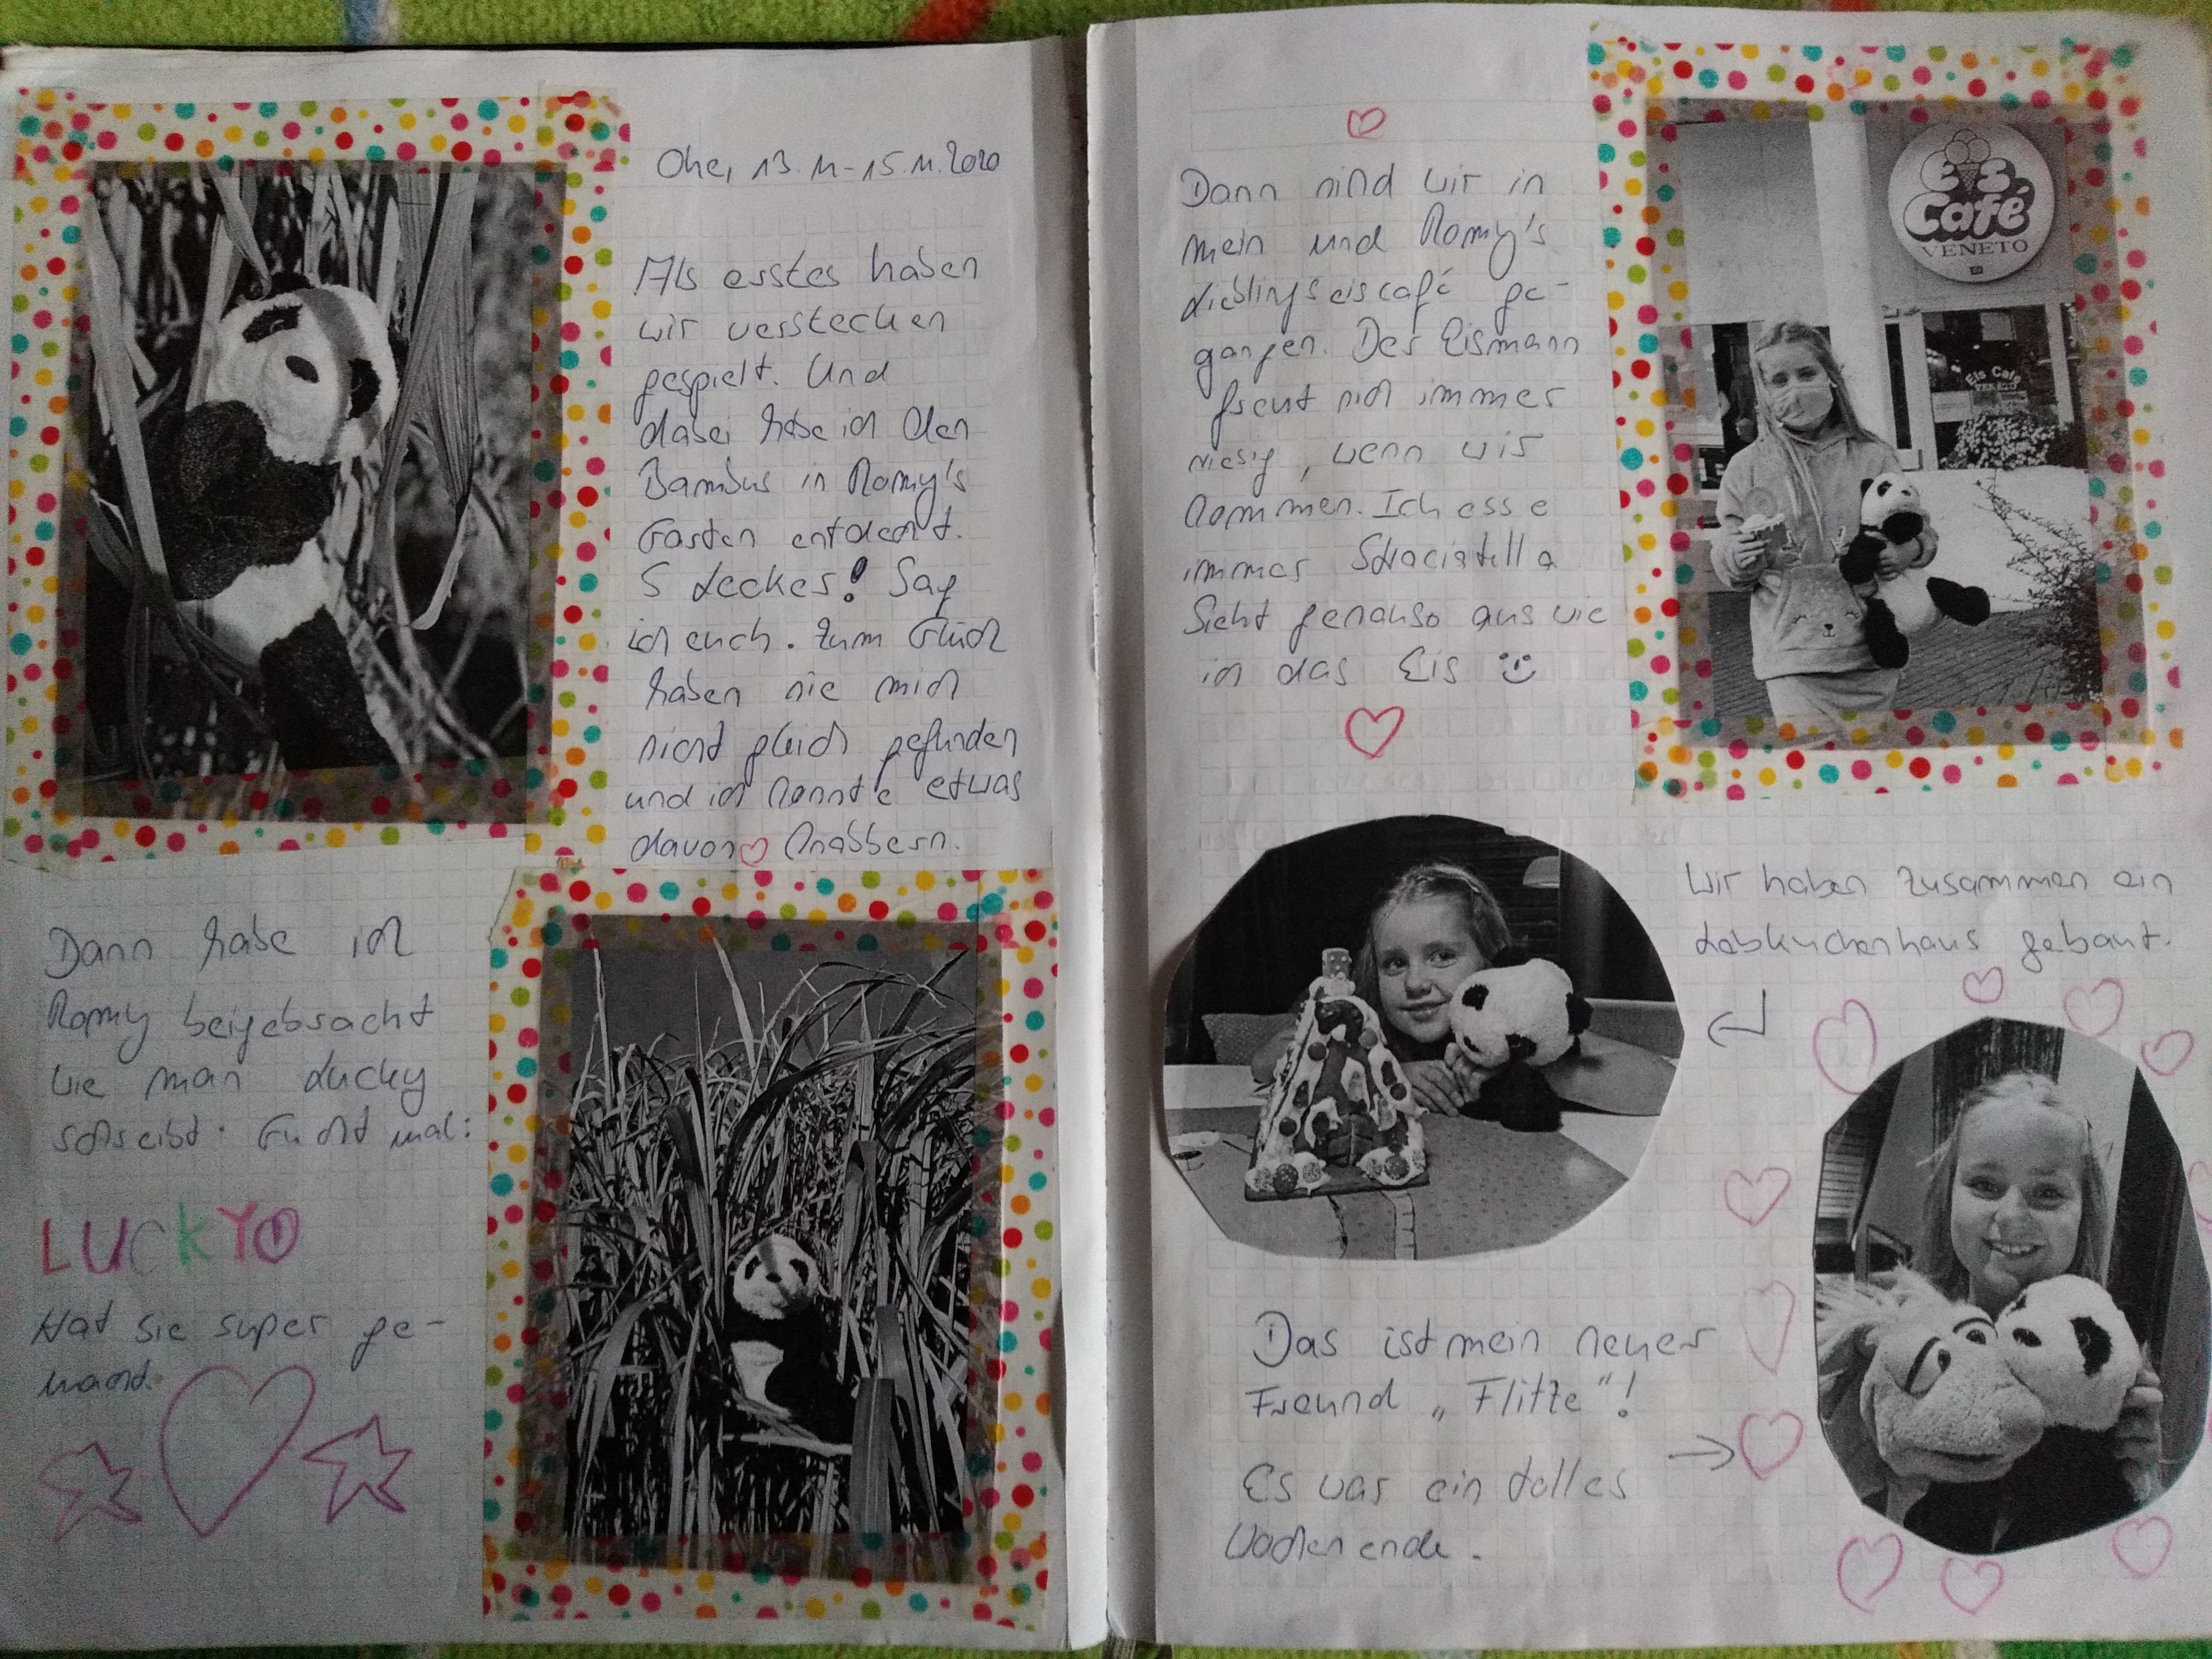 Ohe, 13.11-15.11.2020
Als erstes haben
wir verstecken
gespielt. Und
dabei habe ich den
Bambus in Romy's
Garten entdeckt.
S Lecker! Sag
ich euch. Zum Glück
haben sie mich
nicht gleich gefunden
und ich konnte etwas
davon knabbern.
Dann habe ich
Romy beigebracht
wie man Lucky
schreibt. Guckt mal:
LUCKY!
Hat sie super ge-
macht.
Dann sind wir in
mein und Romy's
Lieblingseiscafé ge-
gangen. Der Eismann
freut sich immer
riesig, wenn wir
kommen. Ich esse
immer Straciatella
Sieht genauso aus wie
ich das Eis
Eis
Café
VENETO
Eis Café
VENETO
Wir haben zusammen ein
Lebkuchenhaus gebaut.
Das ist mein neuer
Freund „Flitze"!
Es war ein tolles
Wochenende.